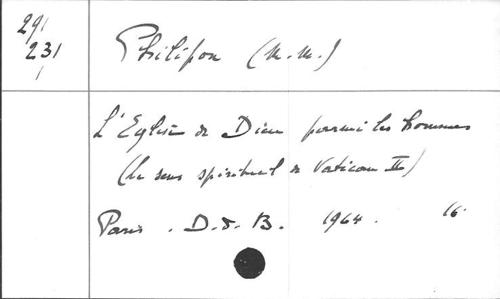 291
231
Philipon (M.M.)
L'Eglise de Dieu parmi les hommes
(le sens spirituel de Vatican II)
Paris. D.d.B. 1964. 16